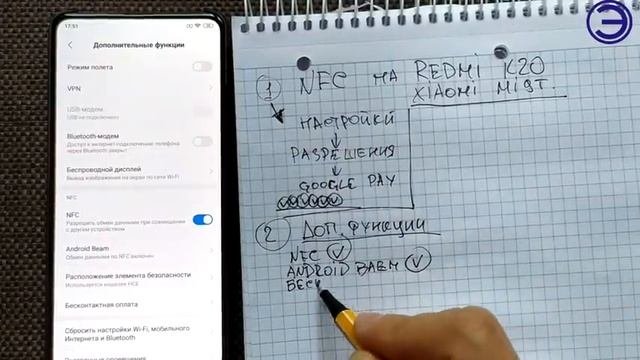 17:51
Дополнительные функции
Режим полета
VPN
USB-модем
USB не подключен
Bluetooth-модем
Доступ к интернет-подключению телефона
через Bluetooth закрыт
Беспроводной дисплей
Вывод изображения на экран по сети Wi-Fi
NFC
NFC
Разрешить обмен данными при совмещении
с другим устройством
Android Beam
Обмен данными по NFC включен
Расположение элемента безопасности
Используется кошелек HCE
Бесконтактная оплата
Сбросить настройки Wi-Fi, мобильного
Интернета и Bluetooth
Э
1 NFC на REDMI K20
XIAOMI MI9T.
НАСТРОЙКИ
РАЗРЕШЕНИЯ
GOOGLE PAY
2 ДОП. ФУНКЦИИ
NFC
ANDROID BAEM
БЕСК